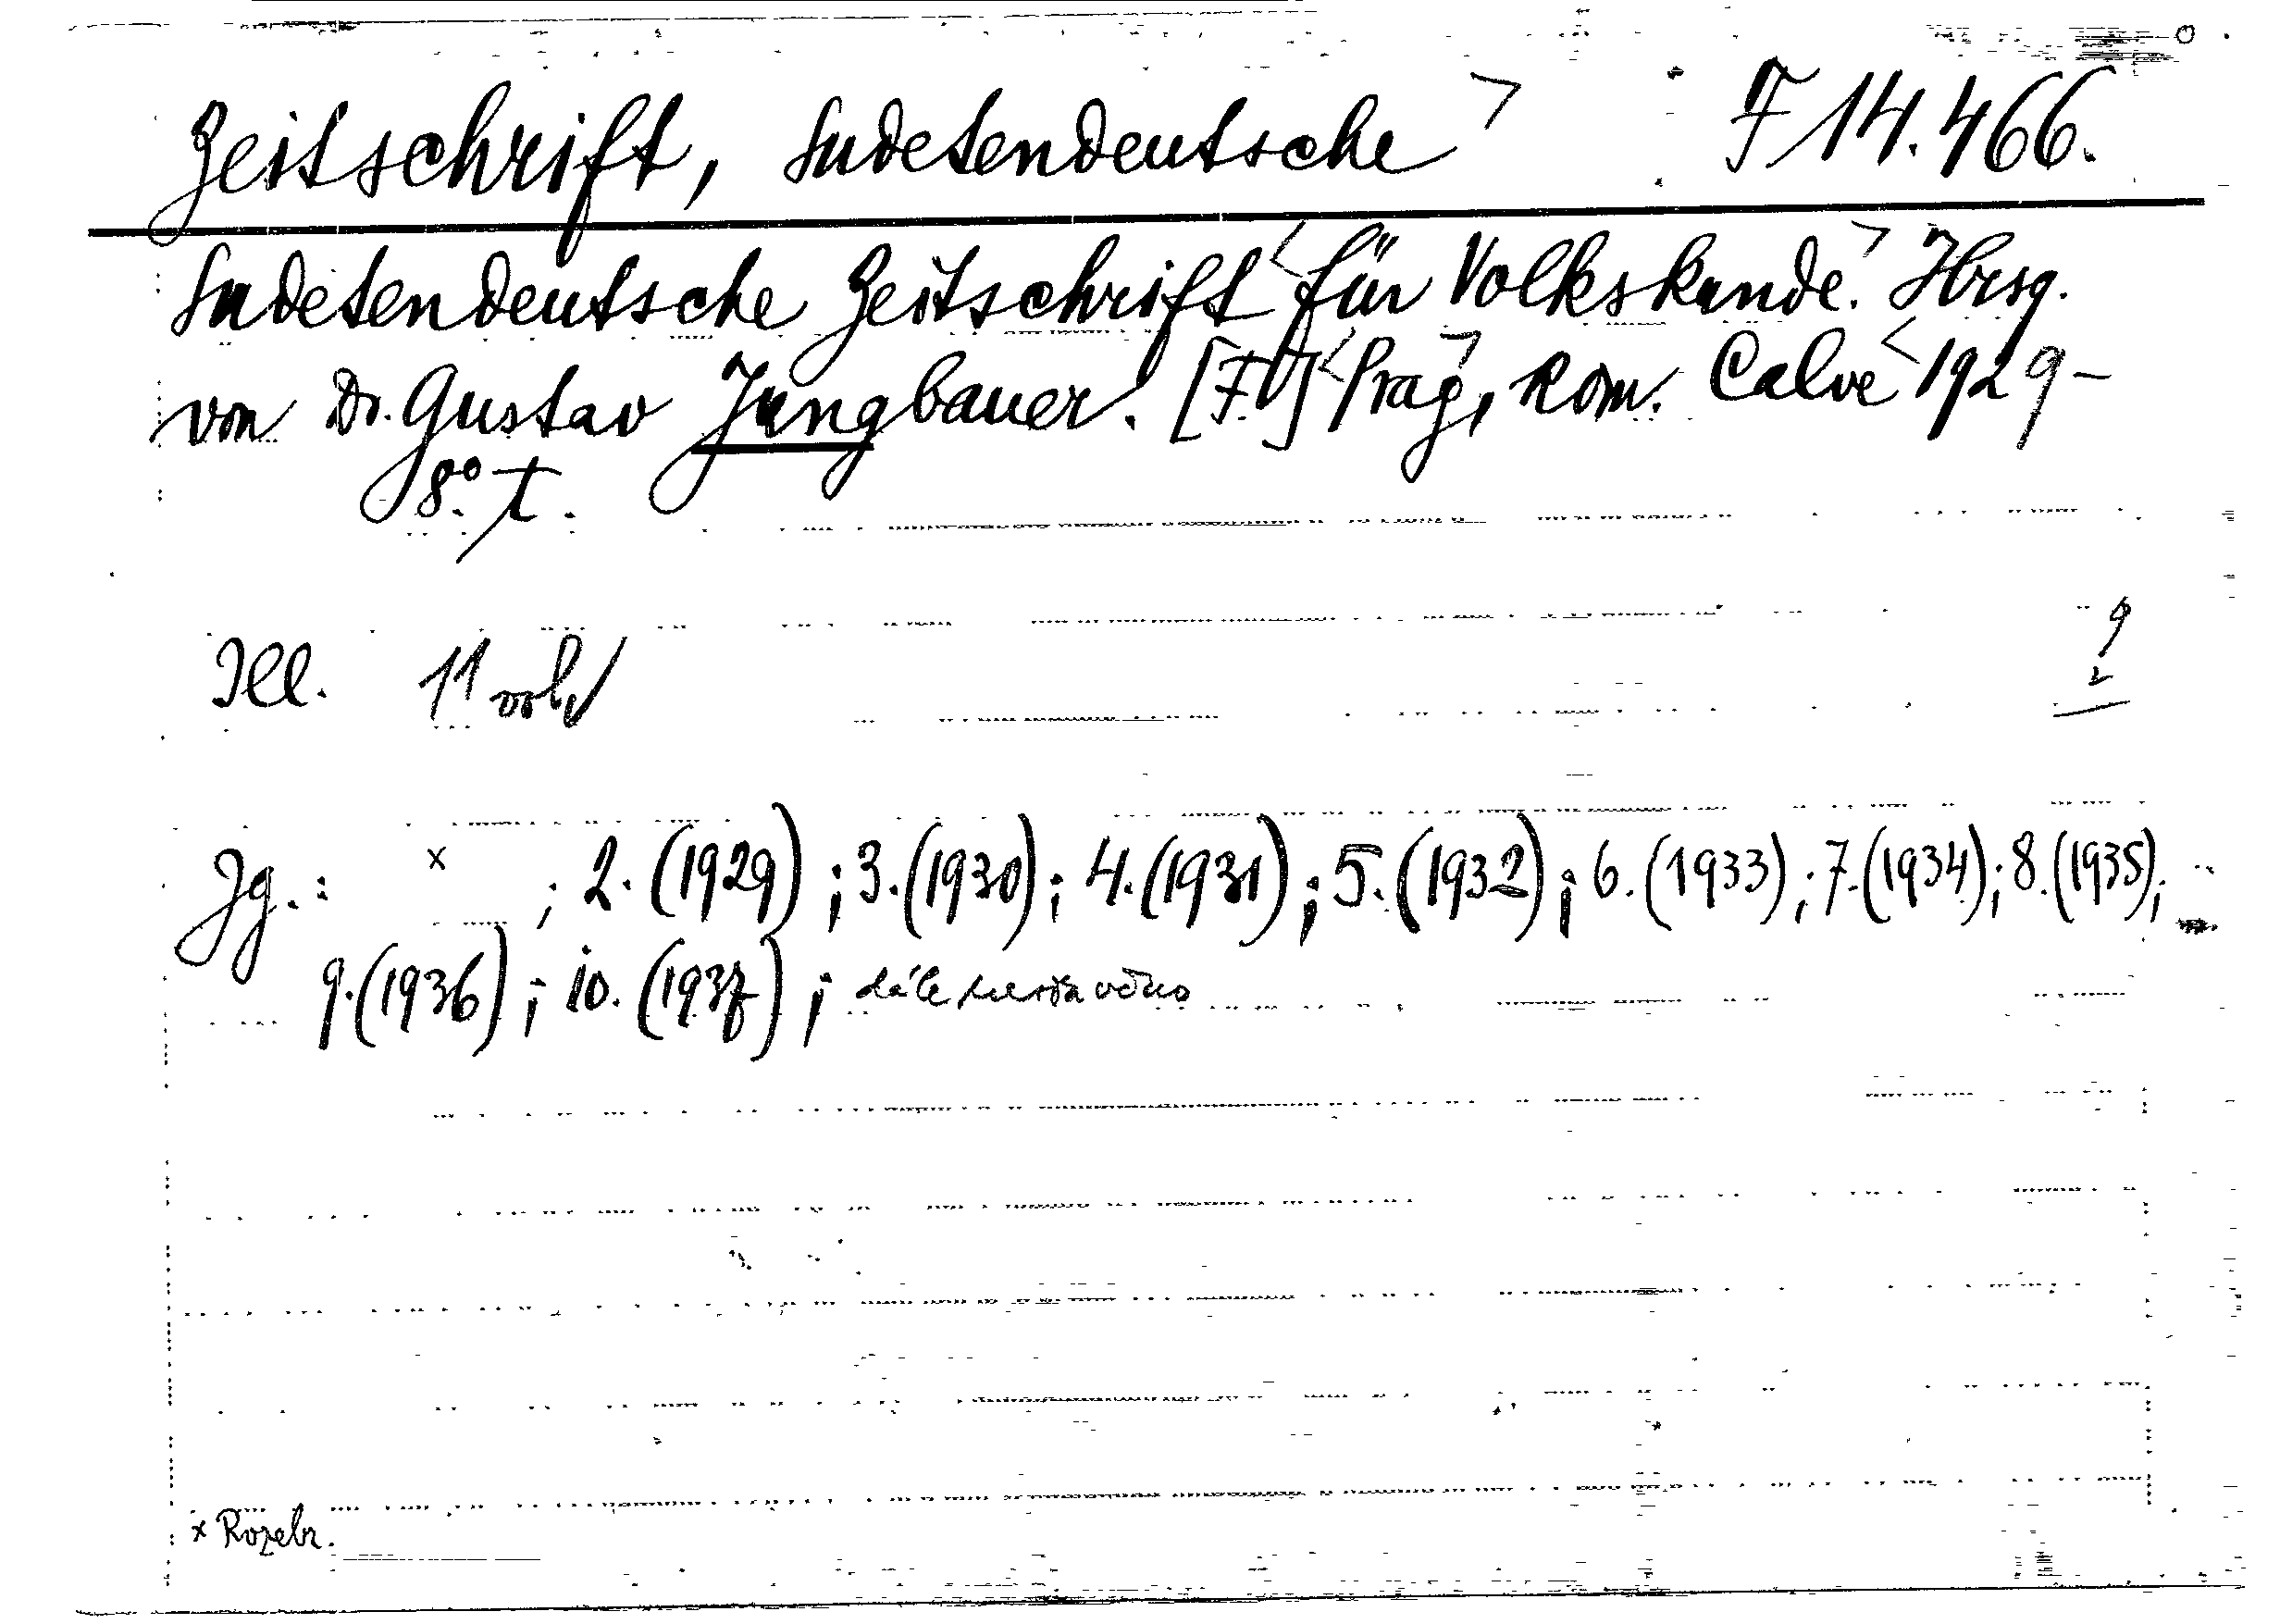 Zeitschrift, Sudetendeutsche > F 14.466.
Sudetendeutsche Zeitschrift < für Volkskunde. > Hrsg.
von Dr. Gustav Jungbauer. [FU] < Prag, > Kom. Calve < 1929-
8°. t.
Ill. 11 vol.
9
2
Jg.: x ; 2. (1929) ; 3. (1930) ; 4. (1931) ; 5. (1932) ; 6. (1933) ; 7. (1934) ; 8. (1935) ;
9. (1936) ; 10. (1937) ; dále
x Rozebr.